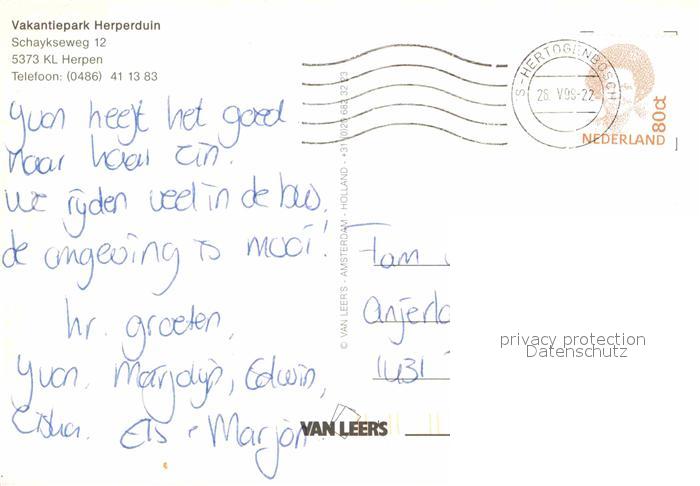 Vakantiepark Herperduin
Schaykseweg 12
5373 KL Herpen
Telefoon: (0486) 41 13 83
Yvon heeft het goed
naar haar zin.
We rijden veel in de bus,
de omgeving is mooi!
hr. groeten,
Yvon, Marjolijn, Edwin,
Els + Marjon
© VAN LEER'S - AMSTERDAM - HOLLAND - +31 (0)20 682 32 23
VAN LEER'S
'S-HERTOGENBOSCH
26.V.98-22
NEDERLAND
80ct
Fam
Anjerla
1431
privacy protection
Datenschutz